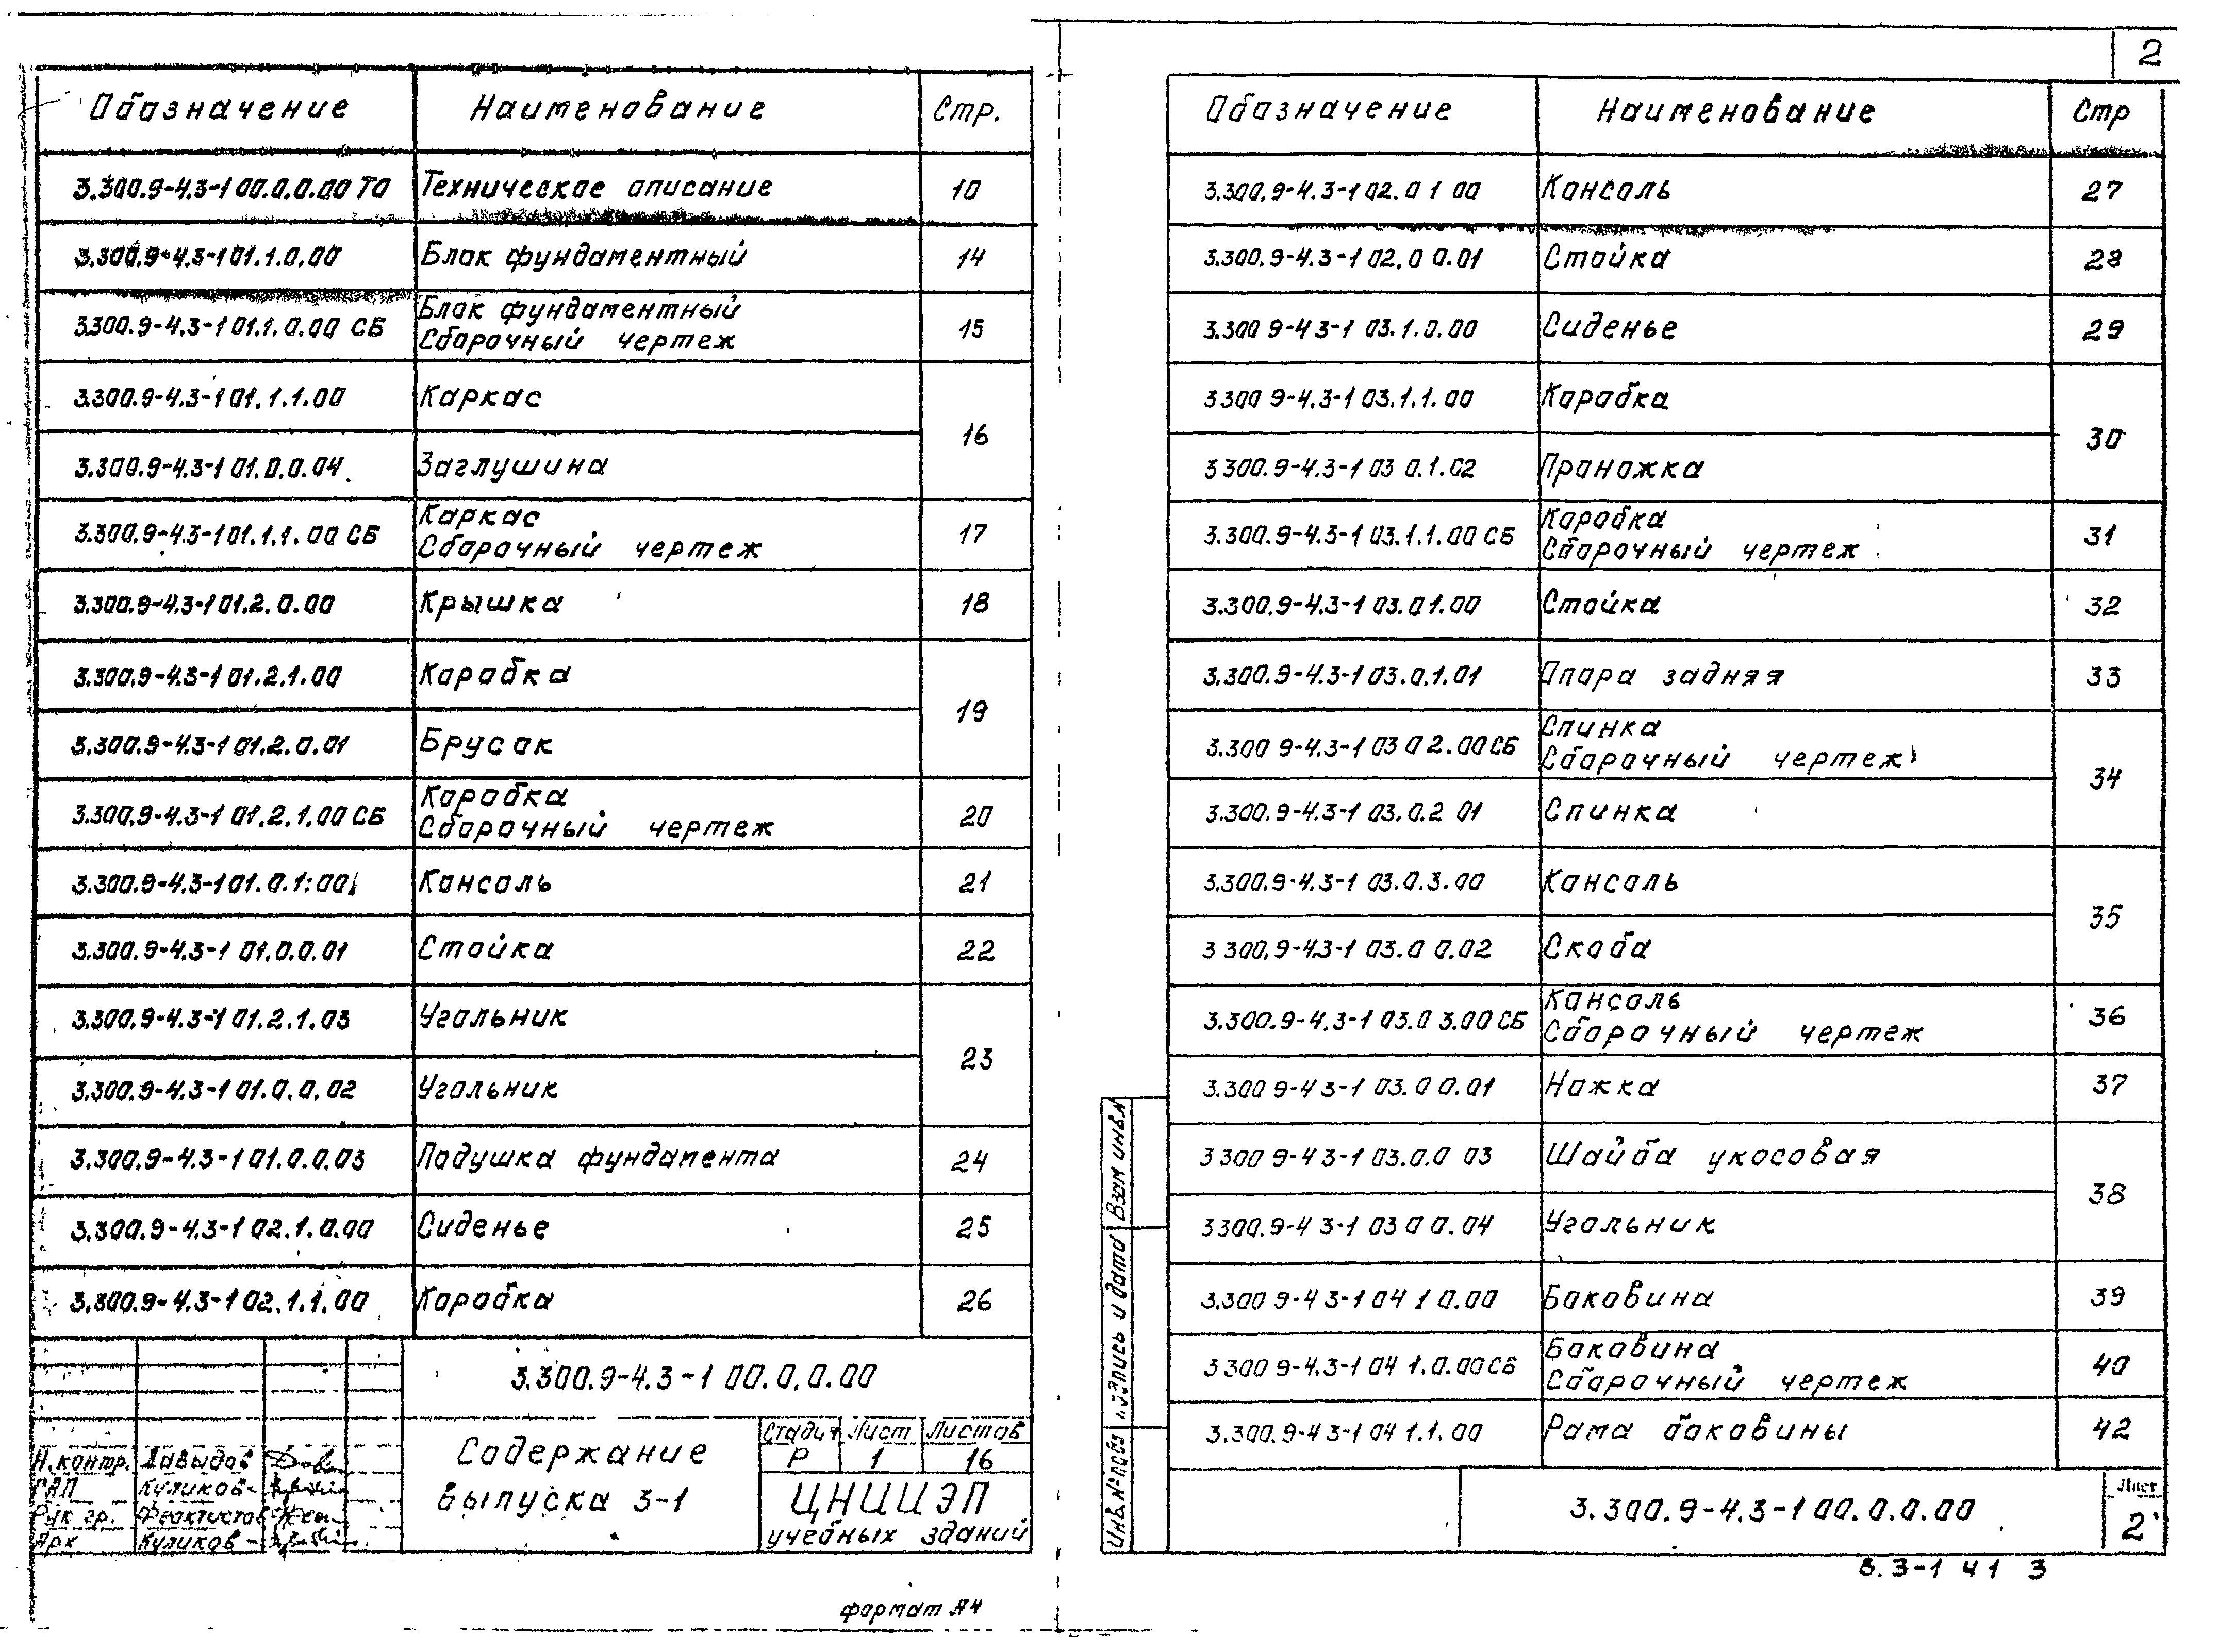 2
Обозначение Наименование Стр.
3.300.9-4.3-1 00.0.0.00 ТО Техническое описание 10
3.300.9-4.3-1 01.1.0.00 Блок фундаментный 14
3.300.9-4.3-1 01.1.0.00 СБ Блок фундаментный
Сборочный чертеж 15
3.300.9-4.3-1 01.1.1.00 Каркас
16
3.300.9-4.3-1 01.0.0.04 Заглушина
3.300.9-4.3-1 01.1.1.00 СБ Каркас
Сборочный чертеж 17
3.300.9-4.3-1 01.2.0.00 Крышка 18
3.300.9-4.3-1 01.2.1.00 Коробка
19
3.300.9-4.3-1 01.2.0.01 Брусок
3.300.9-4.3-1 01.2.1.00 СБ Коробка
Сборочный чертеж 20
3.300.9-4.3-1 01.0.1.00 Консоль 21
3.300.9-4.3-1 01.0.0.01 Стойка 22
3.300.9-4.3-1 01.2.1.03 Угольник
23
3.300.9-4.3-1 01.0.0.02 Угольник
3.300.9-4.3-1 01.0.0.03 Подушка фундамента 24
3.300.9-4.3-1 02.1.0.00 Сиденье 25
3.300.9-4.3-1 02.1.1.00 Коробка 26
3.300.9-4.3-1 00.0.0.00
Содержание
выпуска 3-1
Стадия Лист Листов
Р 1 16
ЦНИИЭП
учебных зданий
Н.контр. Давыдов
ГАП Куликов
Рук гр. Феоктистов
Арх Куликов
формат А4
Обозначение Наименование Стр
3.300.9-4.3-1 02.0 1 00 Консоль 27
3.300.9-4.3-1 02.0 0.01 Стойка 28
3.300 9-4 3-1 03.1.0.00 Сиденье 29
3 300 9-4.3-1 03.1.1.00 Коробка
30
3 300.9-4.3-1 03 0.1.02 Проножка
3.300.9-4.3-1 03.1.1.00 СБ Коробка
Сборочный чертеж 31
3.300.9-4.3-1 03.0 1.00 Стойка 32
3.300.9-4.3-1 03.0.1.01 Опора задняя 33
3.300 9-4.3-1 03 0 2.00 СБ Спинка
Сборочный чертеж
34
3.300 9-4.3-1 03.0.2 01 Спинка
3.300.9-4.3-1 03.0.3.00 Консоль
35
3 300.9-4.3-1 03.0 0.02 Скоба
3.300.9-4.3-1 03.0 3.00 СБ Консоль
Сборочный чертеж 36
3.300 9-4 3-1 03.0 0.01 Ножка 37
3 300 9-4 3-1 03.0.0 03 Шайба укосовая
38
3 300.9-4 3-1 03 0 0.04 Угольник
3.300 9-4 3-1 04 1 0.00 Боковина 39
3 300 9-4.3-1 04 1.0.00 СБ Боковина
Сборочный чертеж 40
3.300.9-4.3-1 04 1.1.00 Рама боковины 42
3.300.9-4.3-1 00.0.0.00
Лист
2
Взам инв.№
Подпись и дата
Инв.№подл
8.3-1 41 3